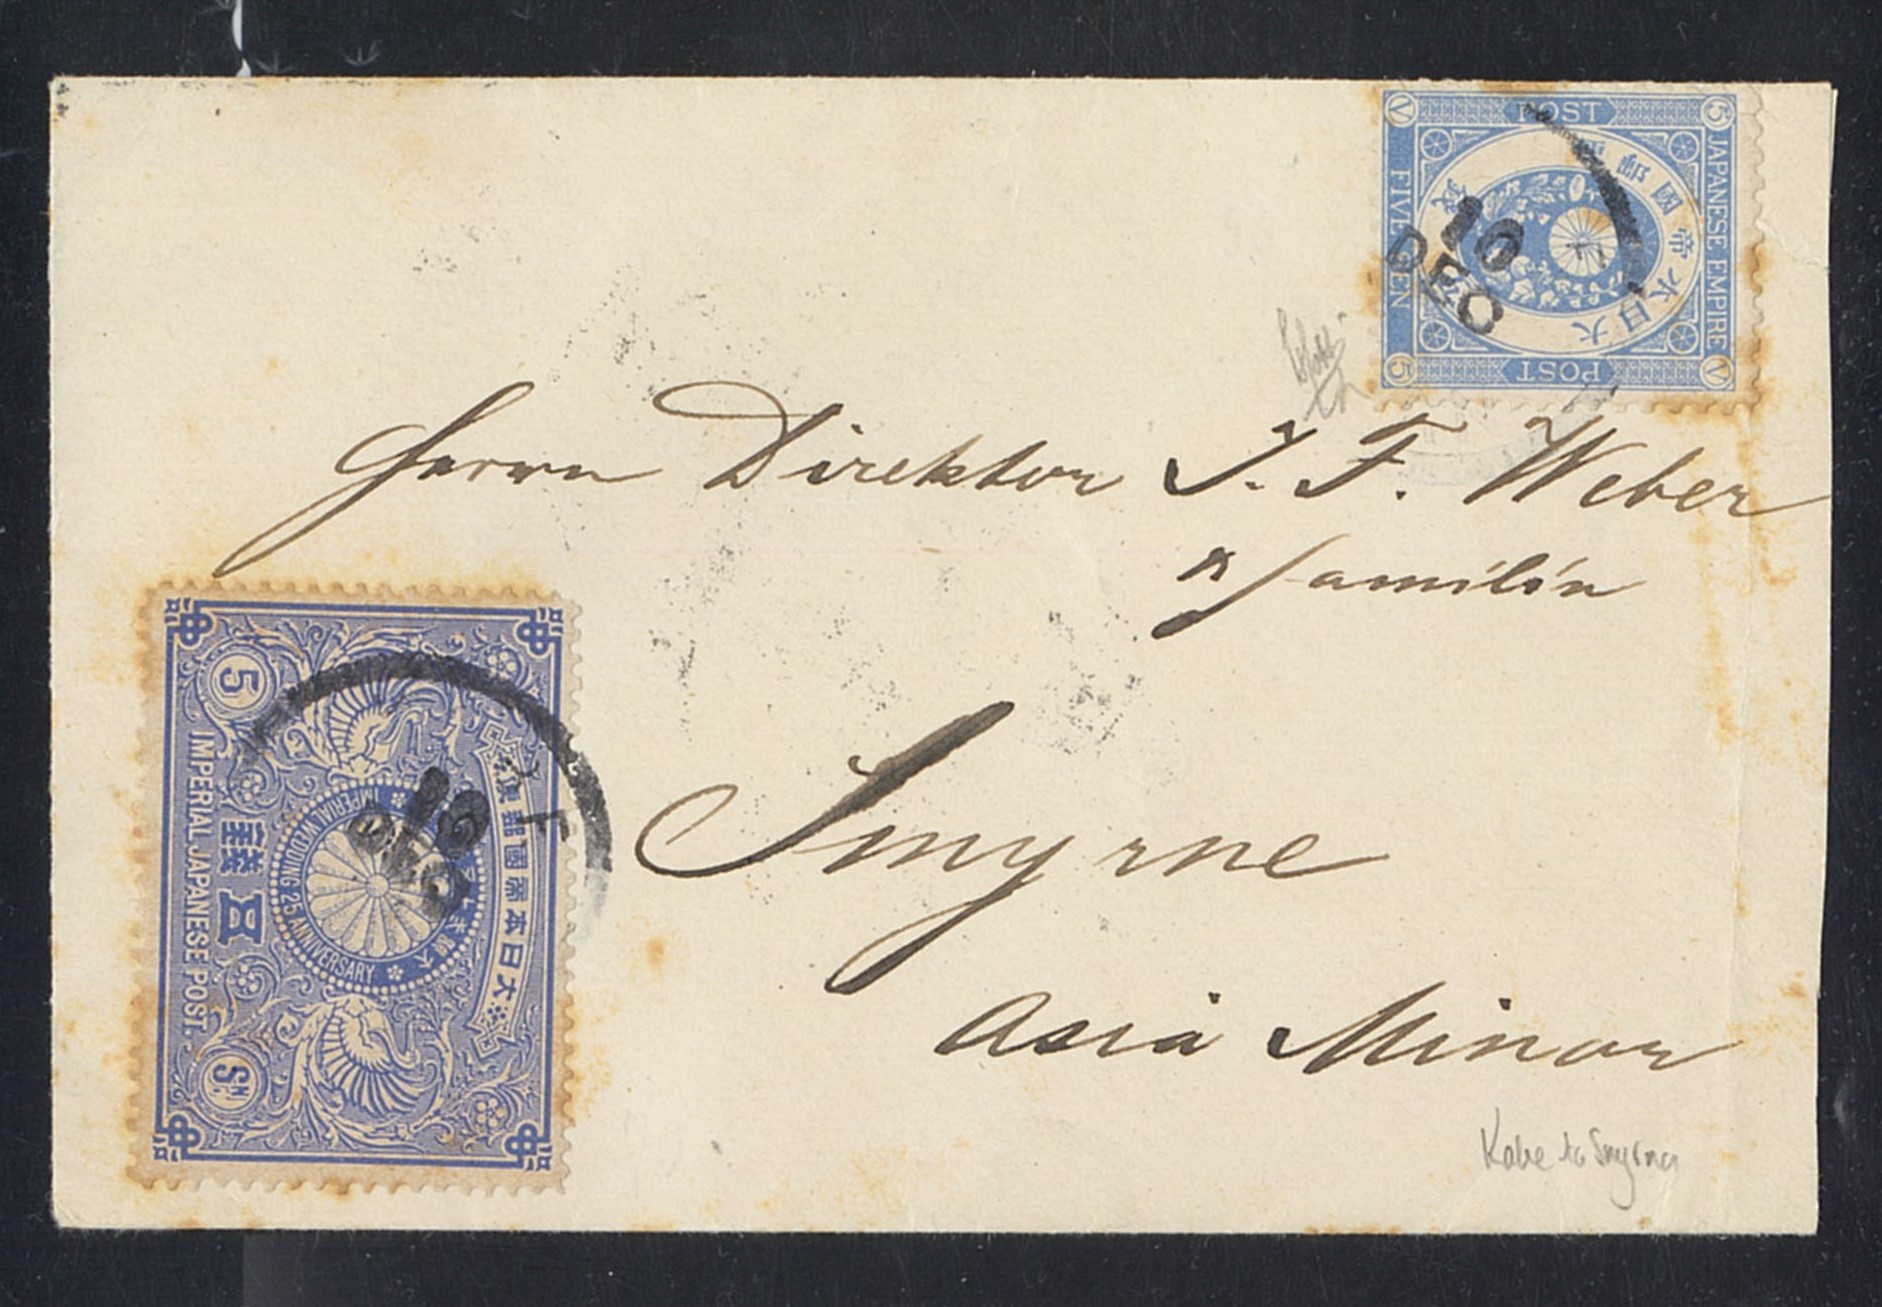 POST
JAPANESE EMPIRE
FIVE SEN
POST
V
5
5
V
大日本帝國郵便
10
DEC
Herrn Direktor J. F. Weber
u Familie
Smyrne
Asia Minor
Kobe to Smyrna
5
IMPERIAL JAPANESE POST.
五錢
5 Sn
大日本帝國郵便
IMPERIAL WEDDING 25 ANNIVERSARY
10
DEC